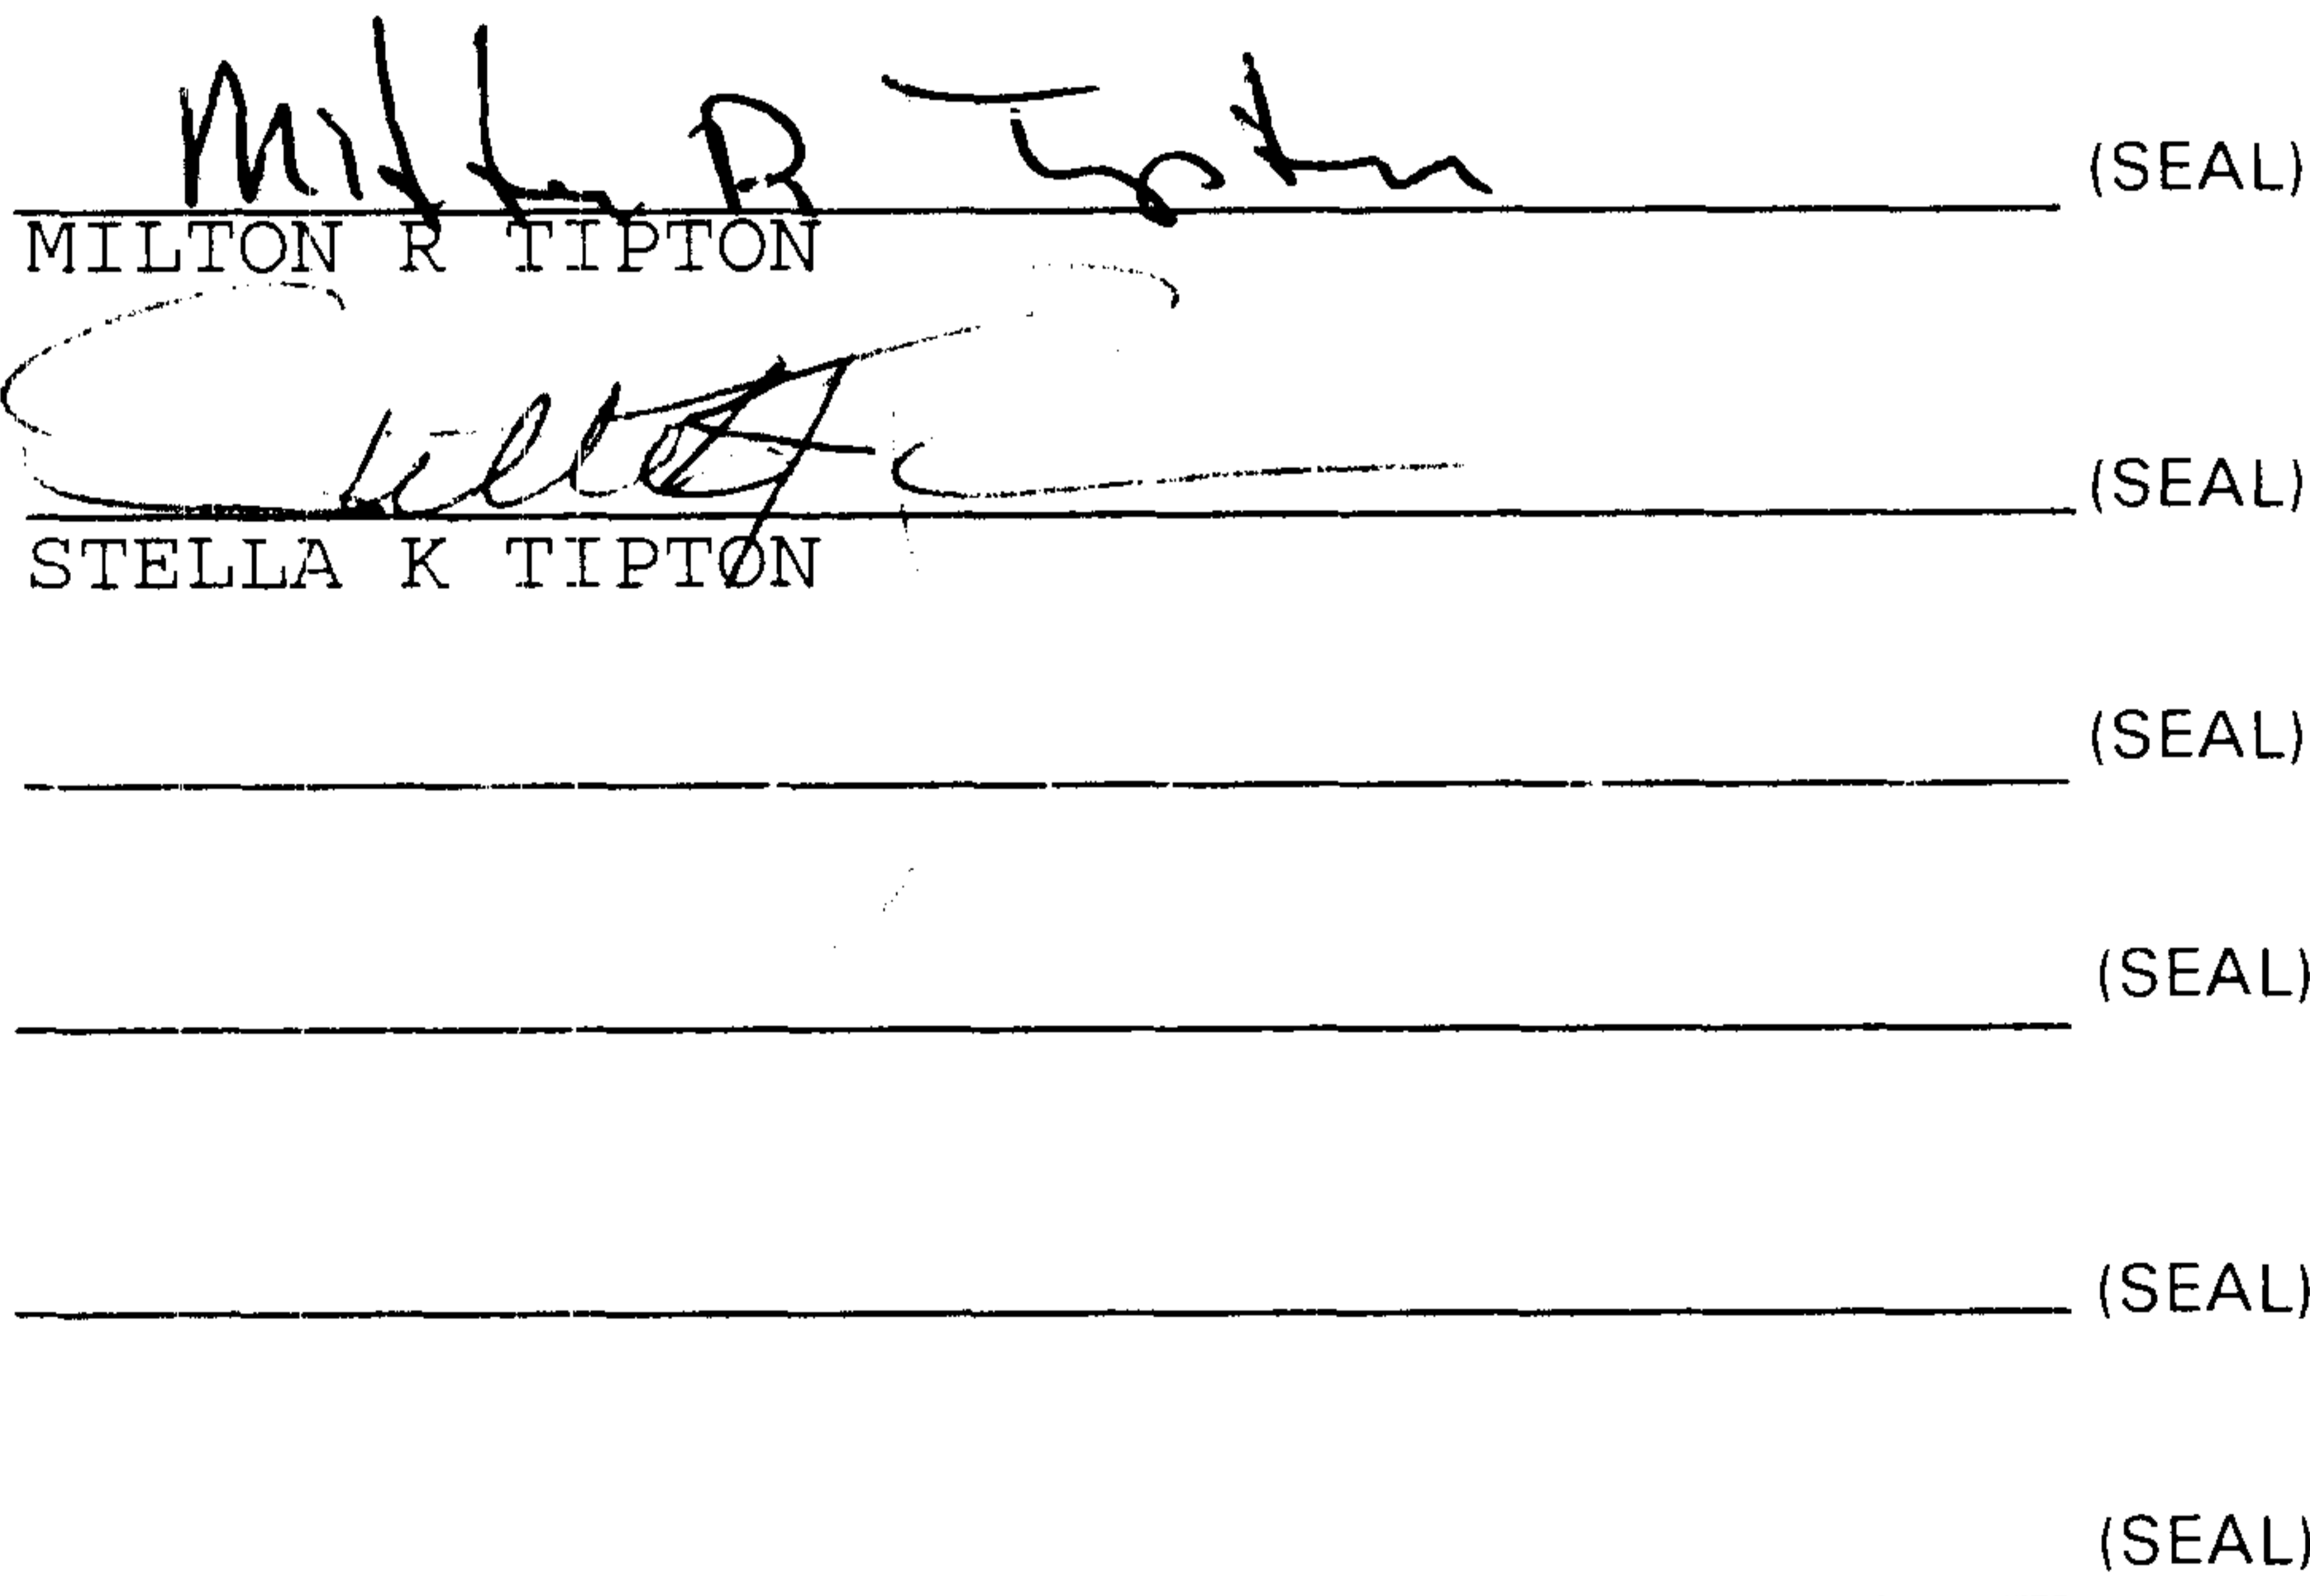 Milton R Tipton (SEAL)
MILTON R TIPTON
(SEAL)
STELLA K TIPTON
(SEAL)
(SEAL)
(SEAL)
(SEAL)